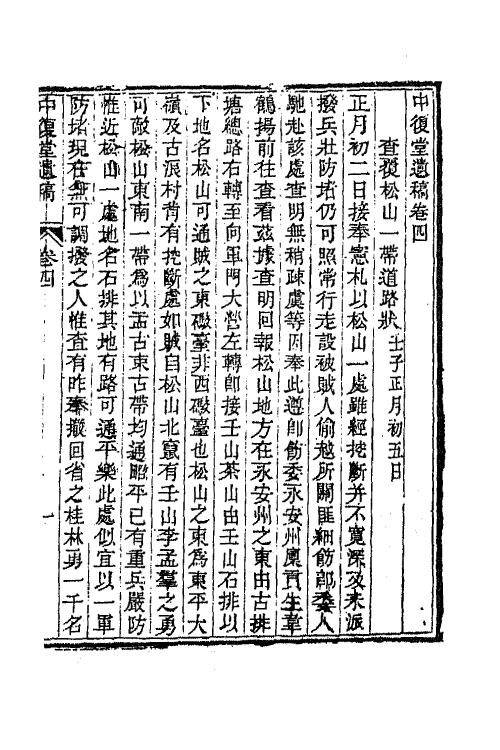 中復堂遺稿卷四
查覆松山一帶道路狀壬子正月初五日
正月初二日接奉憲札以松山一處雖經挖斷并不寬深及未派
撥兵壯防堵仍可照常行走設被賊人偷越所關匪細飭卽委人
馳赴該處查明無稍疎虞等因奉此遵卽飭委永安州廩貢生韋
鶴揚前往查看茲據查明回報松山地方在永安州之東由古排
塘總路右轉至向軍門大營左轉卽接壬山茶山由壬山石排以
下地名松山可通賊之東礮臺非西礮臺也松山之東爲東平大
嶺及古派村背有挖斷處如賊自松山北竄有壬山李孟羣之勇
可敵松山東南一帶爲以孟古東古帶均通昭平已有重兵嚴防
惟近松山一處地名石排其地有路可通平樂此處似宜以一軍
防堵現在無可調撥之人惟査有昨奉撥回省之桂林勇一千名
中復堂遺稿
卷四
一